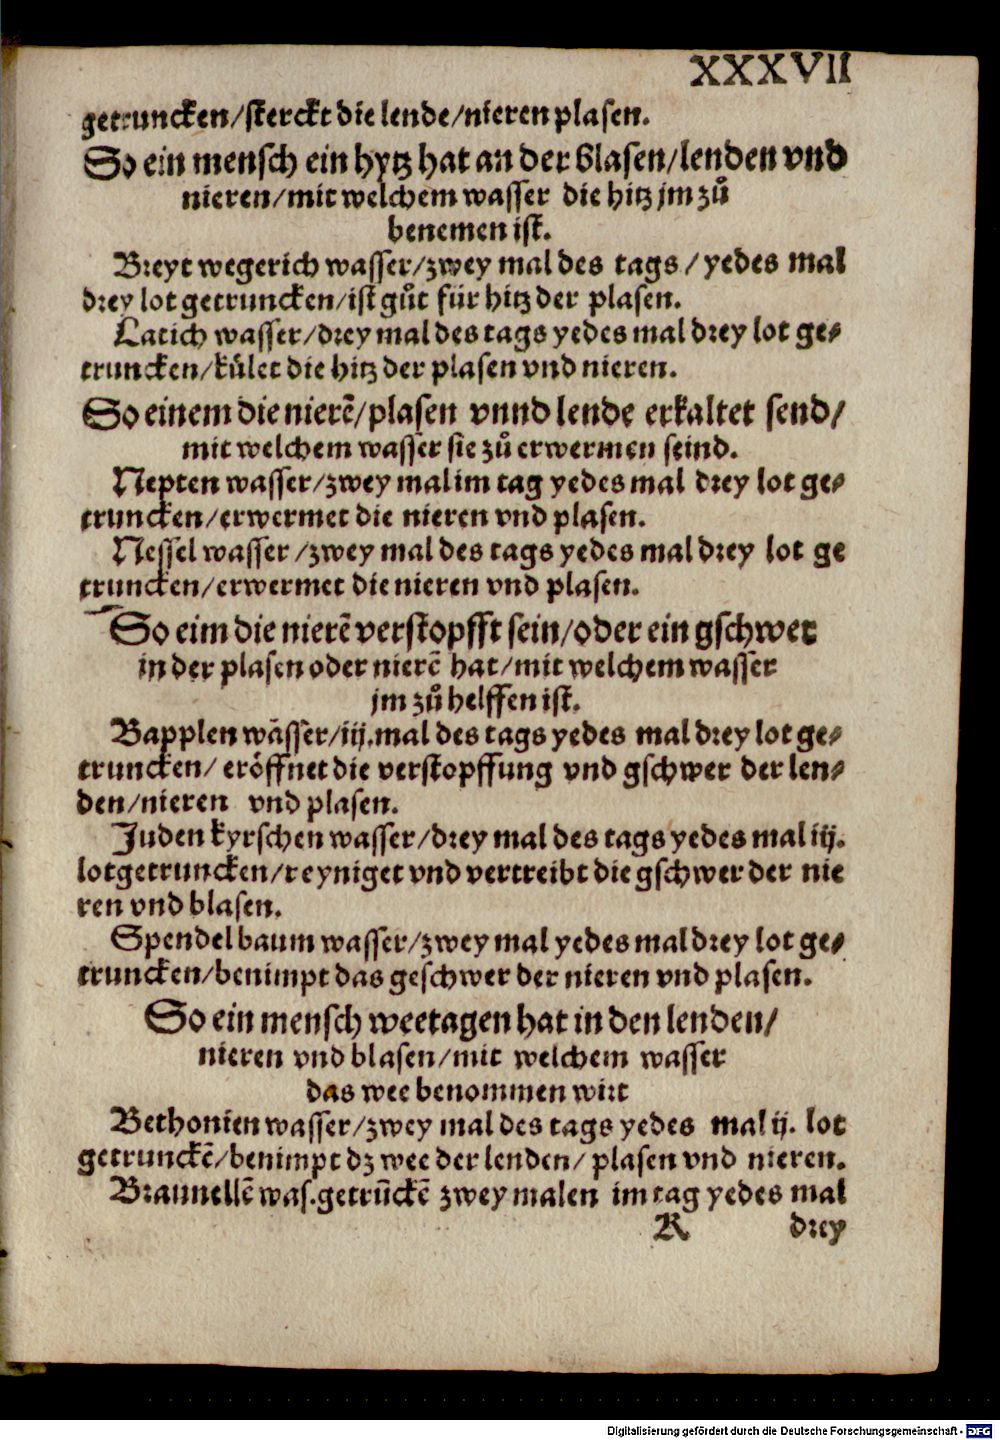 XXXVII
getruncken/sterckt die lende/nieren plasen.
So ein mensch ein hytz hat an der blasen/lenden vnd
nieren/mit welchem wasser die hitz jm zů
benemen ist.
Breyt wegerich wasser/zwey mal des tags/yedes mal
drey lot getruncken/ist gůt für hitz der plasen.
Latich wasser/drey mal des tags yedes mal drey lot ge-
truncken/kület die hitz der plasen vnd nieren.
So einem die nierē/plasen vnnd lende erkaltet send/
mit welchem wasser sie zů erwermen seind.
Nepten wasser/zwey mal im tag yedes mal drey lot ge-
truncken/erwermet die nieren vnd plasen.
Nessel wasser/zwey mal des tags yedes mal drey lot ge
truncken/erwermet die nieren vnd plasen.
So eim die nierē verstopfft sein/oder ein gschwer
in der plasen oder nierē hat/mit welchem wasser
jm zů helffen ist.
Bapplen wasser/iij.mal des tags yedes mal drey lot ge-
truncken/eröffnet die verstopffung vnd gschwer der len-
den/nieren vnd plasen.
Juden kyrschen wasser/drey mal des tags yedes mal iij.
lot getruncken/reyniget vnd vertreibt die gschwer der nie
ren vnd blasen.
Spendelbaum wasser/zwey mal yedes mal drey lot ge-
truncken/benimpt das geschwer der nieren vnd plasen.
So ein mensch weetagen hat in den lenden/
nieren vnd blasen/mit welchem wasser
das wee benommen wirt
Bethonien wasser/zwey mal des tags yedes mal ij. lot
getrunckē/benimpt dz wee der lenden/plasen vnd nieren.
Braunellē was.getrūckē zwey malen im tag yedes mal
K drey
Digitalisierung gefördert durch die Deutsche Forschungsgemeinschaft - DFG